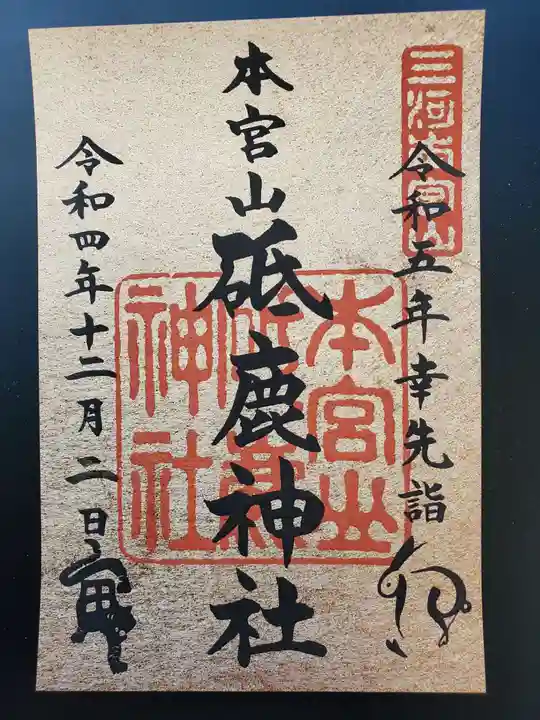 三河本宮山
令和五年幸先詣
卯
本宮山砥鹿神社
令和四年十二月二日
寅
本宮山
砥鹿
神社